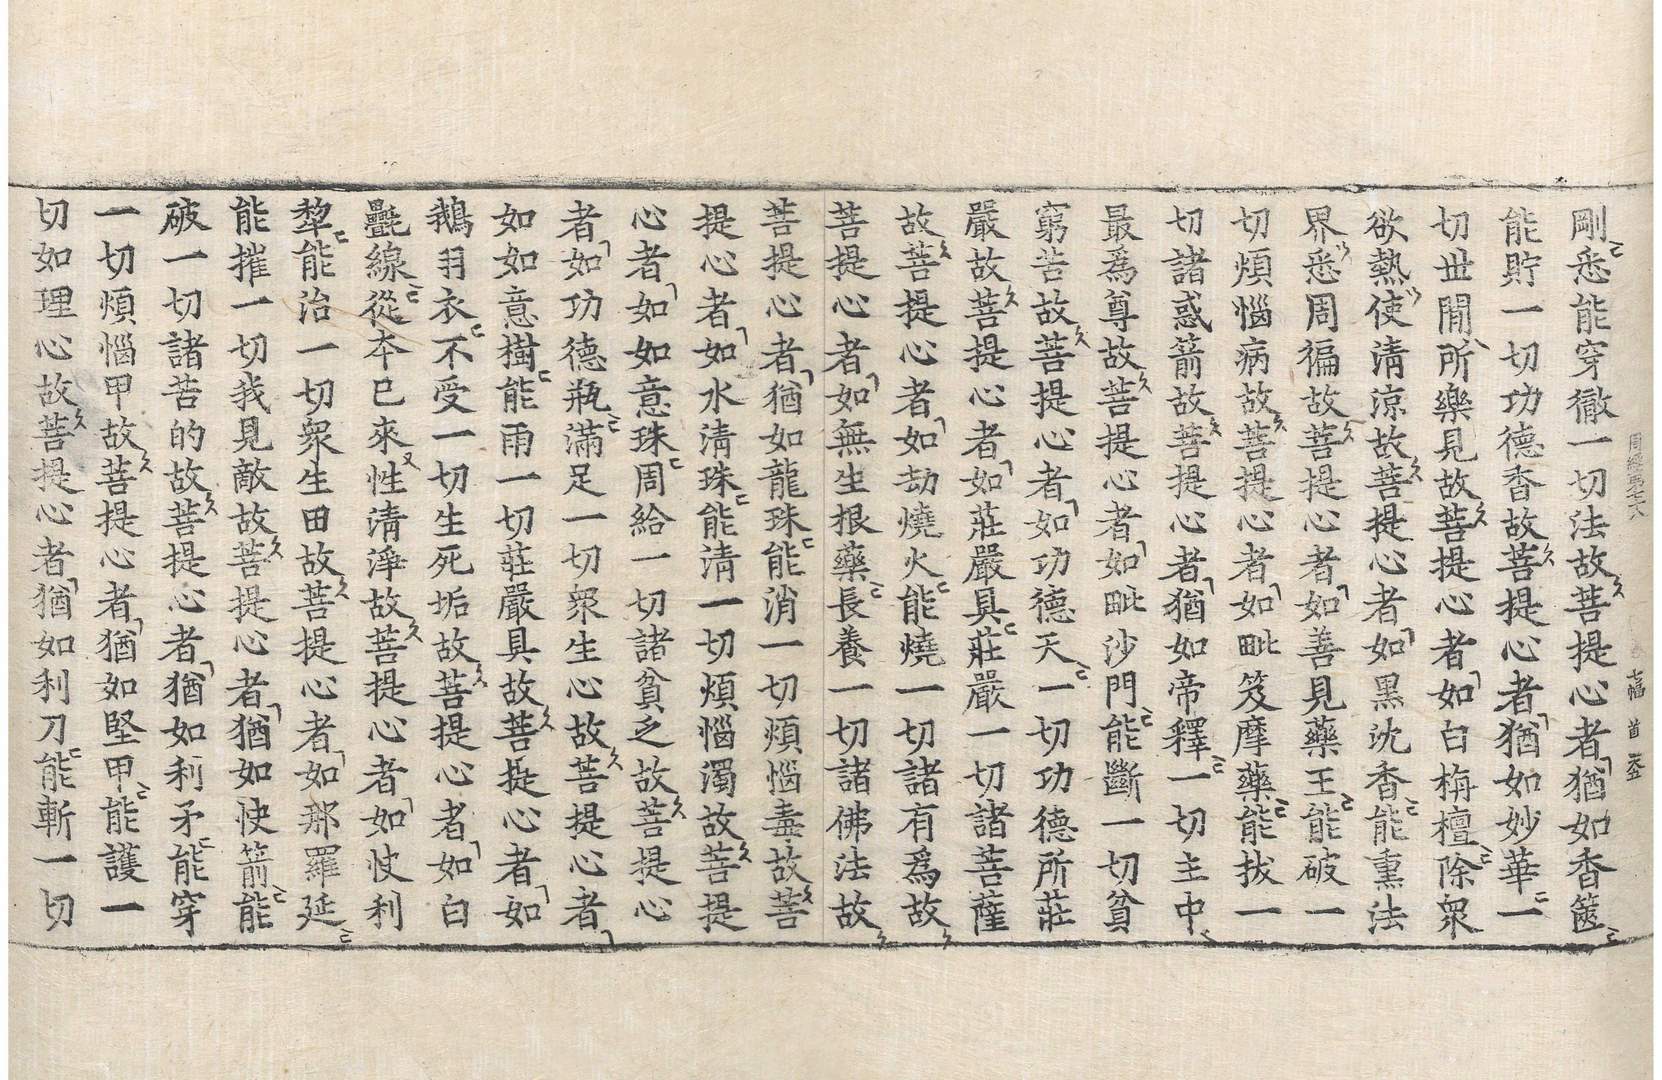 周經第七十八 七幅 首 張
剛悉能穿徹一切法故菩提心者猶如香篋
能貯一切功德香故菩提心者猶如妙華一
切世間所樂見故菩提心者如白栴檀除眾
欲熱使清涼故菩提心者如黑沈香能熏法
界悉周徧故菩提心者如善見藥王能破一
切煩惱病故菩提心者如毗笈摩藥能拔一
切諸惑箭故菩提心者猶如帝釋一切主中
最為尊故菩提心者如毗沙門能斷一切貧
窮苦故菩提心者如功德天一切功德所莊
嚴故菩提心者如莊嚴具莊嚴一切諸菩薩
故菩提心者如劫燒火能燒一切諸有為故
菩提心者如無生根藥長養一切諸佛法故
菩提心者猶如龍珠能消一切煩惱毒故菩
提心者如水清珠能清一切煩惱濁故菩提
心者如如意珠周給一切諸貧乏故菩提心
者如功德瓶滿足一切眾生心故菩提心者
如如意樹能雨一切莊嚴具故菩提心者如
鵝羽衣不受一切生死垢故菩提心者如白
㲲線從本已來性清淨故菩提心者如快利
犂能治一切眾生田故菩提心者如那羅延
能摧一切我見敵故菩提心者猶如快箭能
破一切諸苦的故菩提心者猶如利矛能穿
一切煩惱甲故菩提心者猶如堅甲能護一
切如理心故菩提心者猶如利刀能斬一切